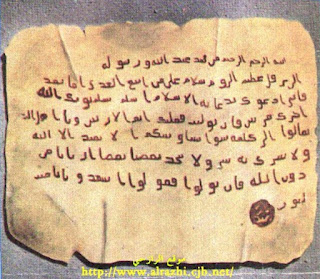 بسم الله الرحمن الرحيم من محمد عبد الله ورسوله
الى هرقل عظيم الروم سلام على من اتبع الهدى اما بعد
فانى ادعوك بدعاية الاسلام اسلم تسلم يوتك الله
اجرك مرتين فان توليت فعليك اثم الاريسين ويا اهل
تعالوا الى كلمة سوا بيننا وبينكم الا نعبد الا الله
ولا نشرك به ولا يتخذ بعضنا بعضا اربابا من
دون الله فان تولوا فقولوا اشهدوا بانا
موقع الرازحي
http://www.alrazhi.cjb.net/